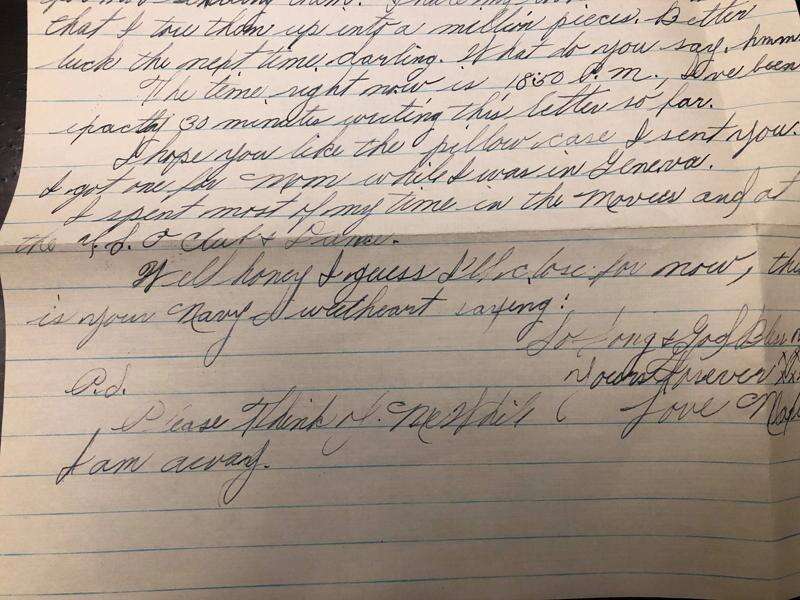 that I tore them up into a million pieces. Better
luck the next time darling. What do you say, hmm
The time right now is 1850 P.m., I've been
exactly 30 minutes writing this letter so far.
I hope you like the pillow case I sent you.
I got one for Mom while I was in Geneva.
I spent most of my time in the Movies and at
the U.S.O Club & Dance.
Well honey I guess I'll close for now, this
is your Navy Sweetheart saying:
So Long & God Bless
Yours Forever
Love
P.S.
Please Think of Me While
I am away.